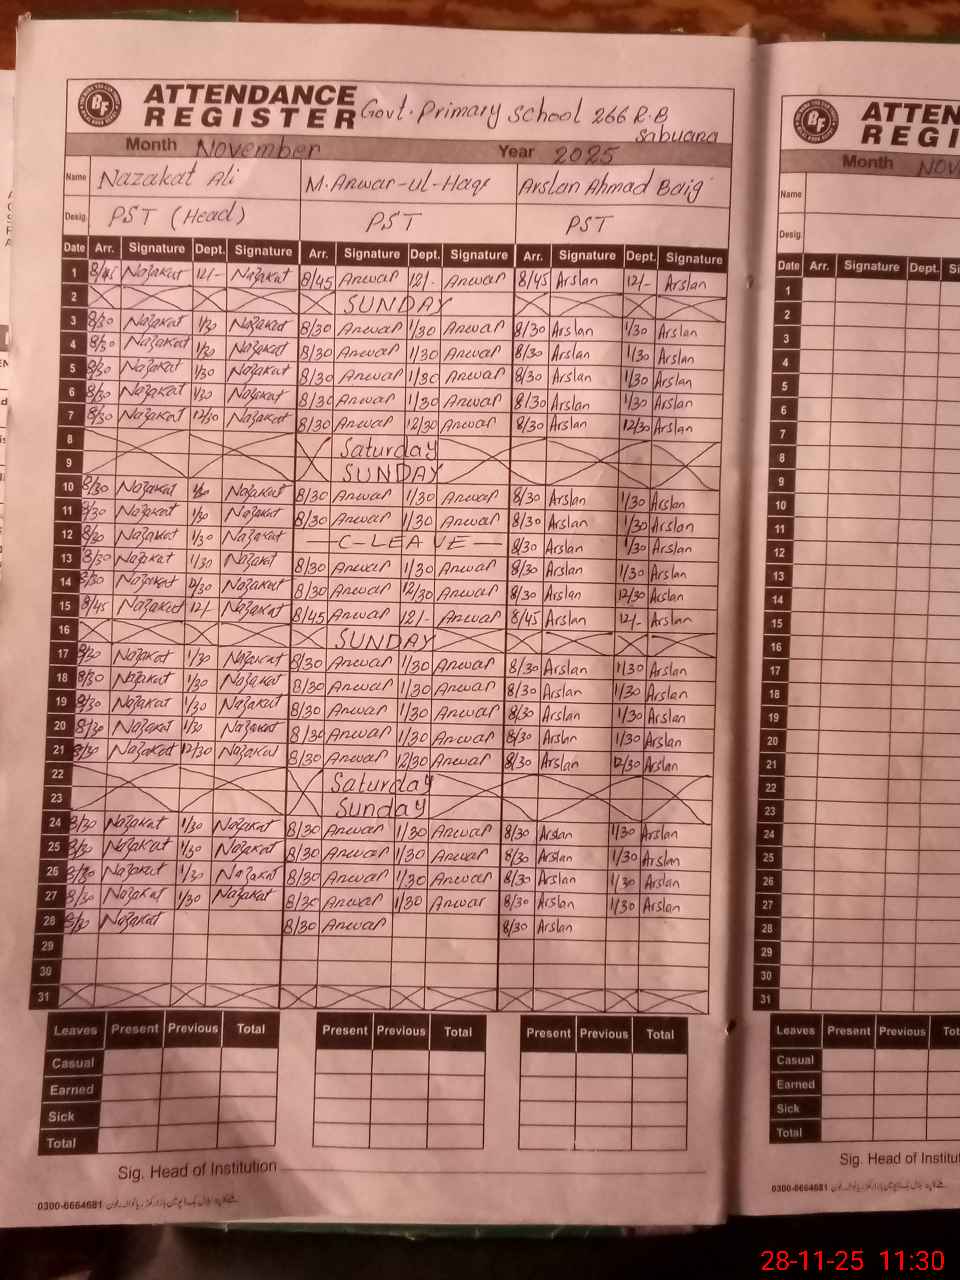 ATTENDANCE
REGISTER Govt. Primary School 266 R.B
Sabuana
Month November Year 2025
Name Nazakat Ali M. Anwar-ul-Haqr Arslan Ahmad Baig
Desig. PST (Head) PST PST
Date Arr. Signature Dept. Signature Arr. Signature Dept. Signature Arr. Signature Dept. Signature
1 8/45 Nazakat 12/- Nazakat 8/45 Anwar 12/- Anwar 8/45 Arslan 12/- Arslan
2 SUNDAY
3 8/30 Nazakat 1/30 Nazakat 8/30 Anwar 1/30 Anwar 8/30 Arslan 1/30 Arslan
4 8/30 Nazakat 1/30 Nazakat 8/30 Anwar 1/30 Anwar 8/30 Arslan 1/30 Arslan
5 8/30 Nazakat 1/30 Nazakat 8/30 Anwar 1/30 Anwar 8/30 Arslan 1/30 Arslan
6 8/30 Nazakat 1/30 Nazakat 8/30 Anwar 1/30 Anwar 8/30 Arslan 1/30 Arslan
7 8/30 Nazakat 12/30 Nazakat 8/30 Anwar 12/30 Anwar 8/30 Arslan 12/30 Arslan
8 Saturday
9 SUNDAY
10 8/30 Nazakat 1/30 Nazakat 8/30 Anwar 1/30 Anwar 8/30 Arslan 1/30 Arslan
11 8/30 Nazakat 1/30 Nazakat 8/30 Anwar 1/30 Anwar 8/30 Arslan 1/30 Arslan
12 8/30 Nazakat 1/30 Nazakat — C-LEAVE — 8/30 Arslan 1/30 Arslan
13 8/30 Nazakat 1/30 Nazakat 8/30 Anwar 1/30 Anwar 8/30 Arslan 1/30 Arslan
14 8/30 Nazakat 12/30 Nazakat 8/30 Anwar 12/30 Anwar 8/30 Arslan 12/30 Arslan
15 8/45 Nazakat 12/- Nazakat 8/45 Anwar 12/- Anwar 8/45 Arslan 12/- Arslan
16 SUNDAY
17 8/30 Nazakat 1/30 Nazakat 8/30 Anwar 1/30 Anwar 8/30 Arslan 1/30 Arslan
18 8/30 Nazakat 1/30 Nazakat 8/30 Anwar 1/30 Anwar 8/30 Arslan 1/30 Arslan
19 8/30 Nazakat 1/30 Nazakat 8/30 Anwar 1/30 Anwar 8/30 Arslan 1/30 Arslan
20 8/30 Nazakat 1/30 Nazakat 8/30 Anwar 1/30 Anwar 8/30 Arslan 1/30 Arslan
21 8/30 Nazakat 12/30 Nazakat 8/30 Anwar 12/30 Anwar 8/30 Arslan 12/30 Arslan
22 Saturday
23 Sunday
24 8/30 Nazakat 1/30 Nazakat 8/30 Anwar 1/30 Anwar 8/30 Arslan 1/30 Arslan
25 8/30 Nazakat 1/30 Nazakat 8/30 Anwar 1/30 Anwar 8/30 Arslan 1/30 Arslan
26 8/30 Nazakat 1/30 Nazakat 8/30 Anwar 1/30 Anwar 8/30 Arslan 1/30 Arslan
27 8/30 Nazakat 1/30 Nazakat 8/30 Anwar 1/30 Anwar 8/30 Arslan 1/30 Arslan
28 8/30 Nazakat 8/30 Anwar 8/30 Arslan
29
30
31
Leaves Present Previous Total Present Previous Total Present Previous Total
Casual
Earned
Sick
Total
Sig. Head of Institution
0300-6664681
ATTEN
REGI
Month Nov
Name
Desig.
Date Arr. Signature Dept. Si
1
2
3
4
5
6
7
8
9
10
11
12
13
14
15
16
17
18
19
20
21
22
23
24
25
26
27
28
29
30
31
Leaves Present Previous Tot
Casual
Earned
Sick
Total
Sig. Head of Institut
0300-6664681
28-11-25 11:30